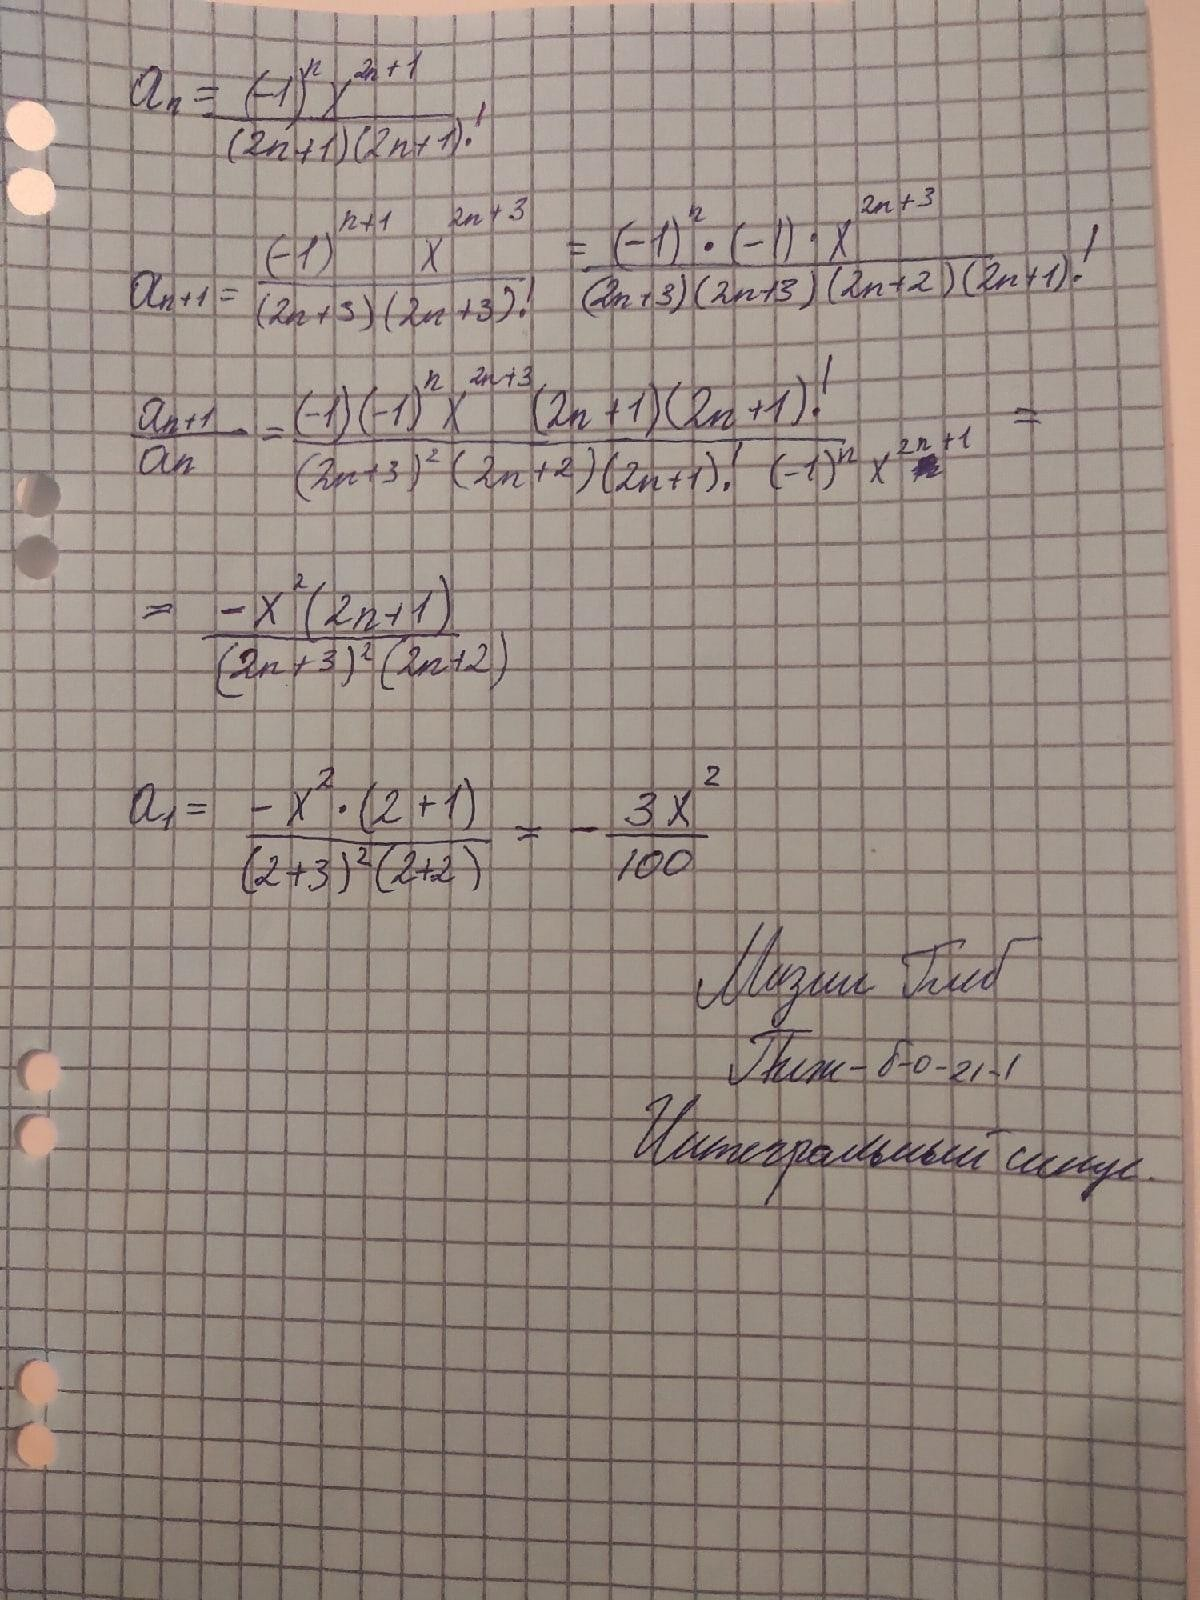 aₙ = (-1)ⁿ x²ⁿ⁺¹ / (2n+1)(2n+1)!
aₙ₊₁ = (-1)ⁿ⁺¹ x²ⁿ⁺³ / (2n+3)(2n+3)! = (-1)ⁿ · (-1) · x²ⁿ⁺³ / (2n+3)(2n+3)(2n+2)(2n+1)!
aₙ₊₁ / aₙ = (-1)(-1)ⁿ x²ⁿ⁺³ (2n+1)(2n+1)! / (2n+3)²(2n+2)(2n+1)! (-1)ⁿ x²ⁿ⁺¹ =
= -x²(2n+1) / (2n+3)²(2n+2)
a₁ = -x²·(2+1) / (2+3)²(2+2) = - 3x² / 100
Мизин Глеб
Пиж-б-о-21-1
Интегральный синус.